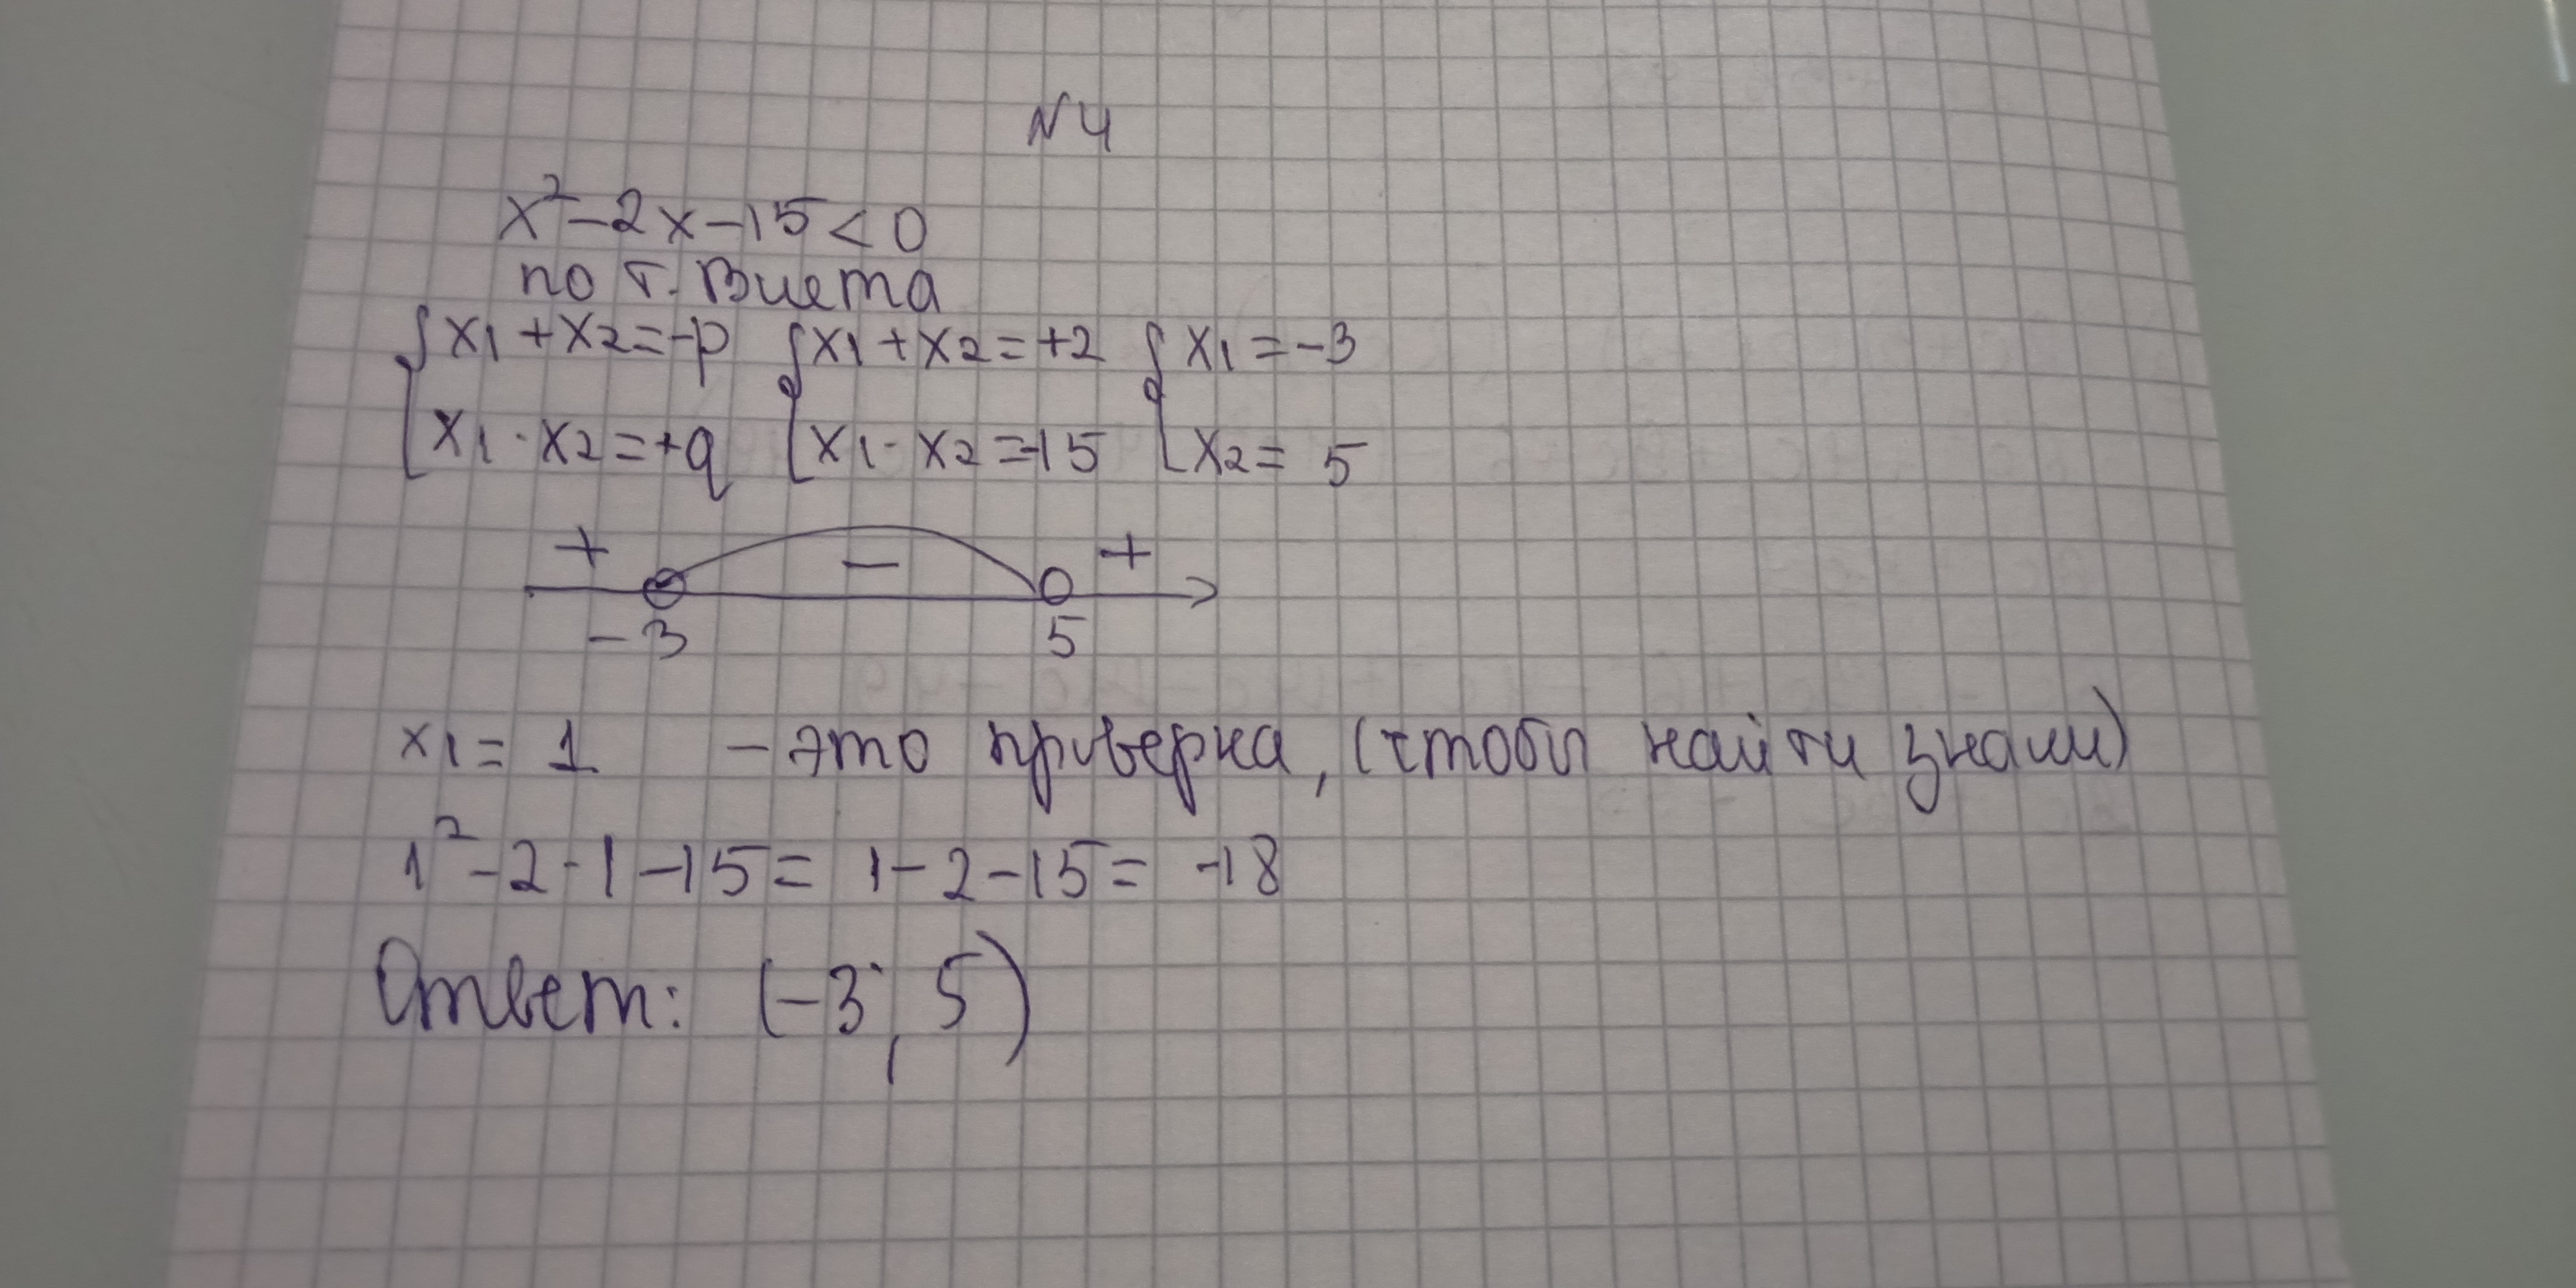 N4
x²-2x-15<0
по т. Виета
{x1+x2=-p {x1+x2=+2 {x1=-3
{x1·x2=+q {x1·x2=-15 {x2=5
+ - +
-3 5
x1=1 -это проверка, (чтобы найти знаки)
1²-2·1-15=1-2-15=-18
Ответ: (-3; 5)